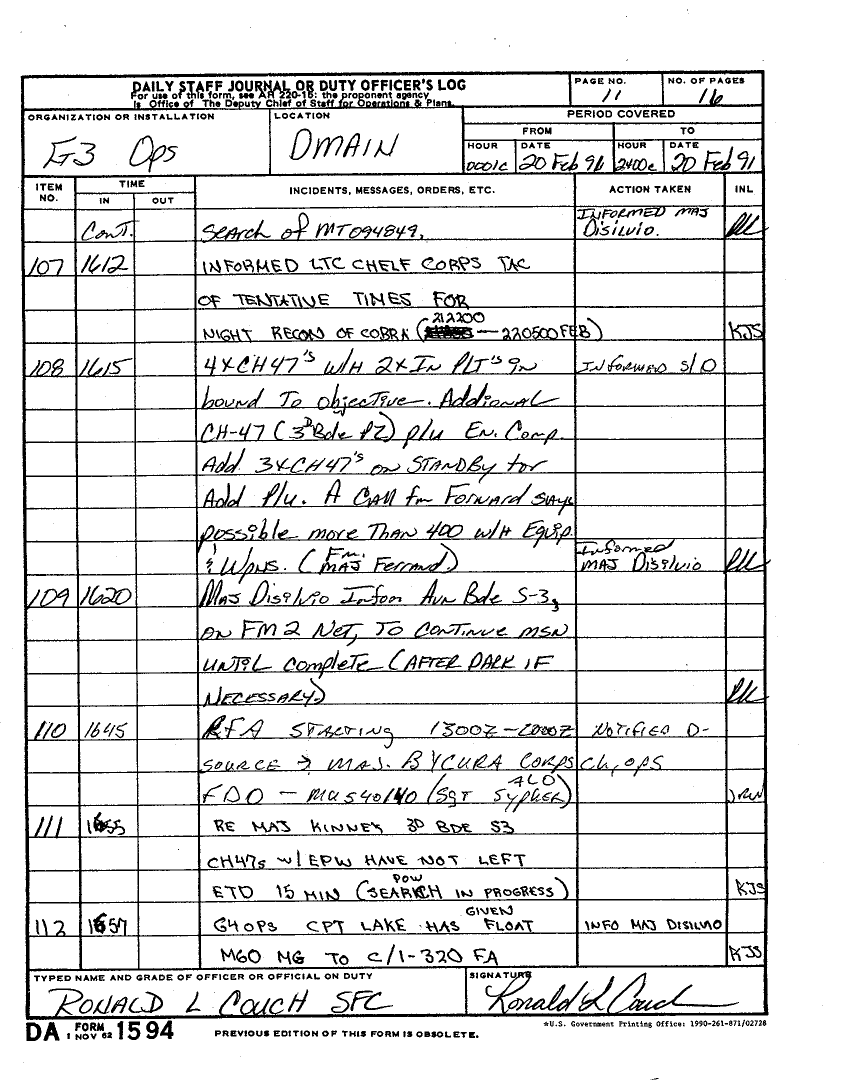 DAILY STAFF JOURNAL OR DUTY OFFICER'S LOG
For use of this form, see AR 220-15: the proponent agency
is Office of The Deputy Chief of Staff for Operations & Plans.
PAGE NO.
11
NO. OF PAGES
16
ORGANIZATION OR INSTALLATION
G3 Ops
LOCATION
DMAIN
PERIOD COVERED
FROM
TO
HOUR
0001C
DATE
20 Feb 91
HOUR
2400C
DATE
20 Feb 91
ITEM NO.
TIME
IN
OUT
INCIDENTS, MESSAGES, ORDERS, ETC.
ACTION TAKEN
INL
Cont. Search of MT094849. INFORMED MAJ
Disilvio.
107 1612 INFORMED LTC CHELF CORPS TAC
OF TENTATIVE TIMES FOR
212200
NIGHT RECON OF COBRA ( — 220500 FEB) KJS
108 1615 4xCH47's w/H 2xIn PLT's In INFORMED S/O
bound To objective. Addional
CH-47 (3D Bde PZ) p/u En. Comp.
Add 3xCH47's on STANDBY for
Add P/u. A Call fm Forward says
possible more Than 400 w/H Equip.
& Wpns. (Fm. MAJ Ferrand) Informed
MAJ Disilvio
109 1620 Maj Disilvio Inform Avn Bde S-3,
on FM 2 Net, To continue msn
until complete (AFTER DARK IF
NECESSARY)
110 1645 RFA STARTING 1300Z- NOTIFIED D-
source → MAJ. BYCURA CORPS Ch, ops
ALO
FDO – MU540140 (Sgt SYPHER) JRW
111 1655 RE MAJ KINNEY 3D BDE S3
CH47s w/ EPW HAVE NOT LEFT
POW
ETD 15 MIN (SEARCH IN PROGRESS) KJS
GIVEN
112 1657 G4 OPS CPT LAKE HAS FLOAT INFO MAJ DISILVIO
M60 MG TO C/1-320 FA KJS
TYPED NAME AND GRADE OF OFFICER OR OFFICIAL ON DUTY
RONALD L COUCH SFC
SIGNATURE
Ronald L Couch
DA FORM 1 NOV 62 1594
PREVIOUS EDITION OF THIS FORM IS OBSOLETE.
*U.S. Government Printing Office: 1990-261-871/02728